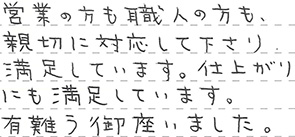 営業の方も職人の方も、
親切に対応して下さり
満足しています。仕上がり
にも満足しています。
有難う御座いました。